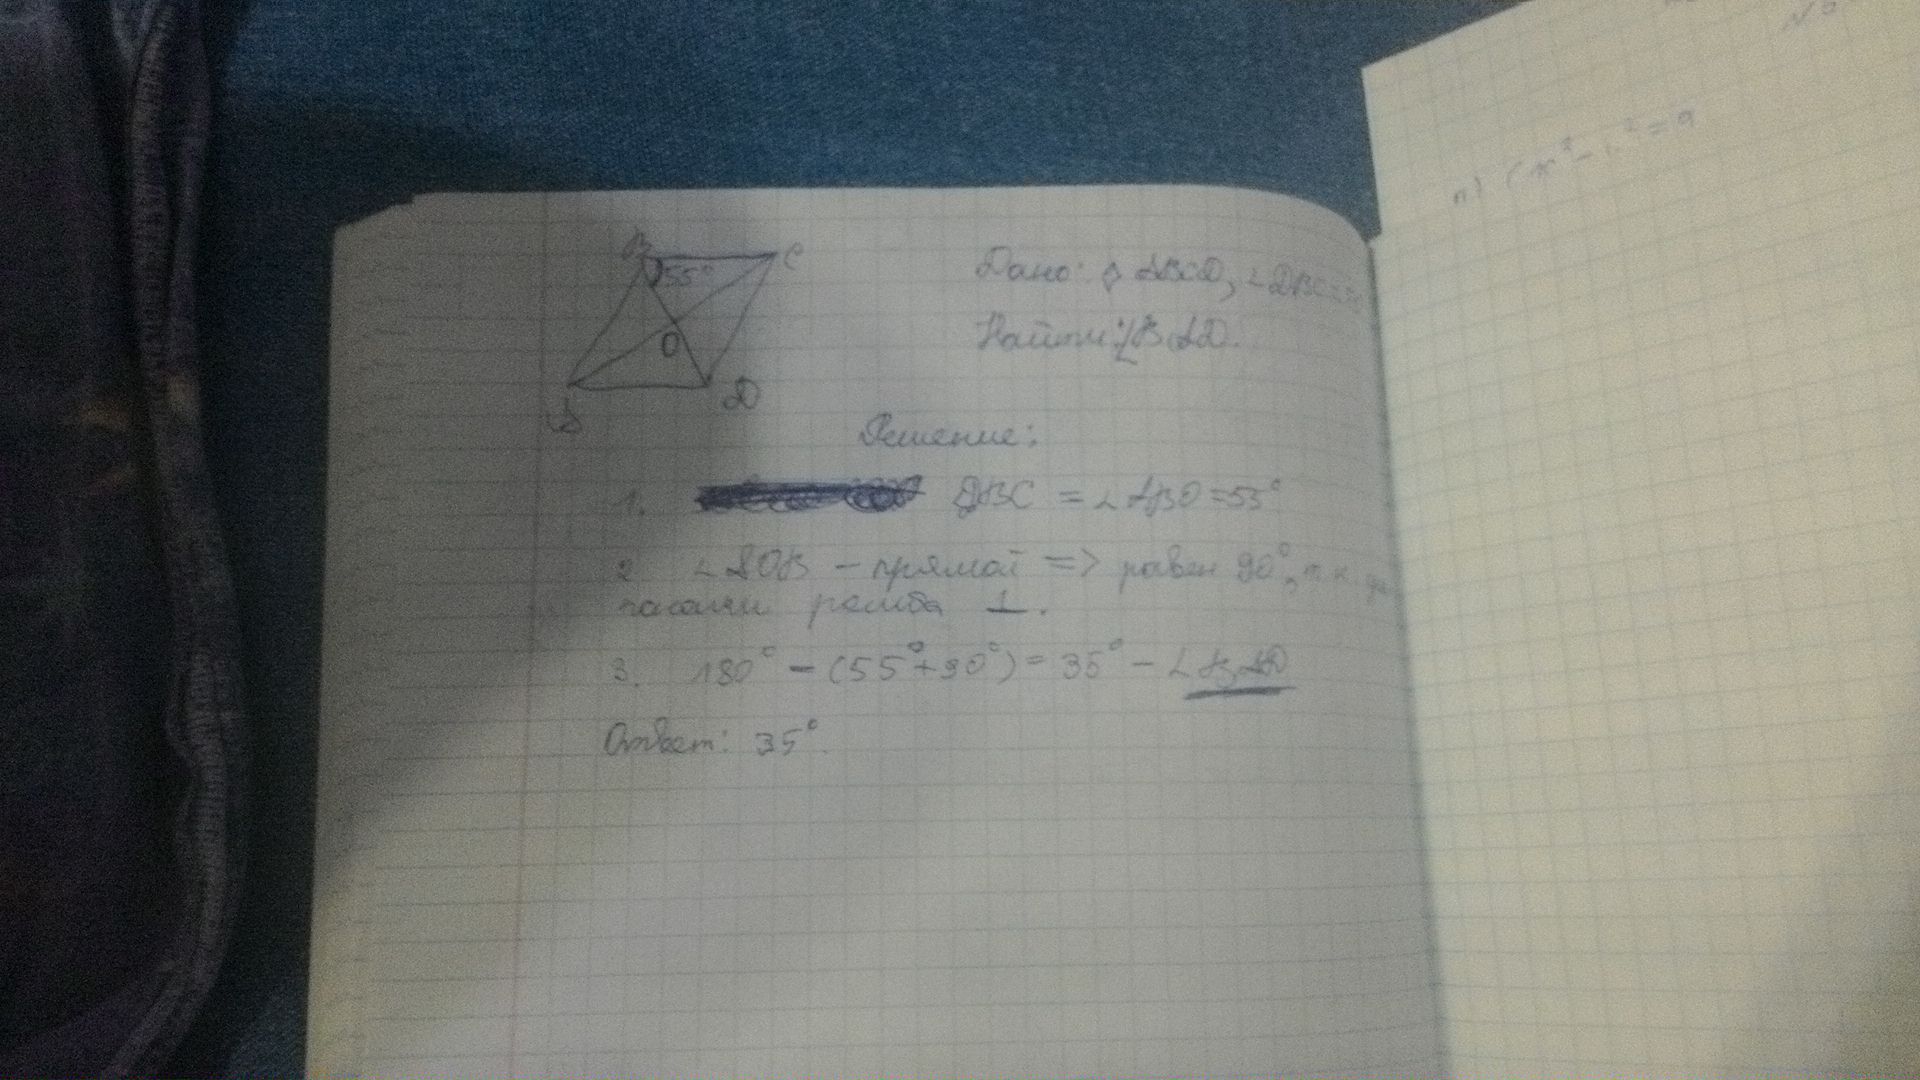 B
C
55°
O
A
D
Дано: ◊ ABCD, ∠DBC =
Найти: ∠BAD.
Решение:
1. DBC = ∠ABO = 55°
2 ∠AOB – прямой => равен 90°, т к
гонали ромба ⊥.
3. 180° – (55°+90°) = 35° – ∠BAD
Ответ: 35°.